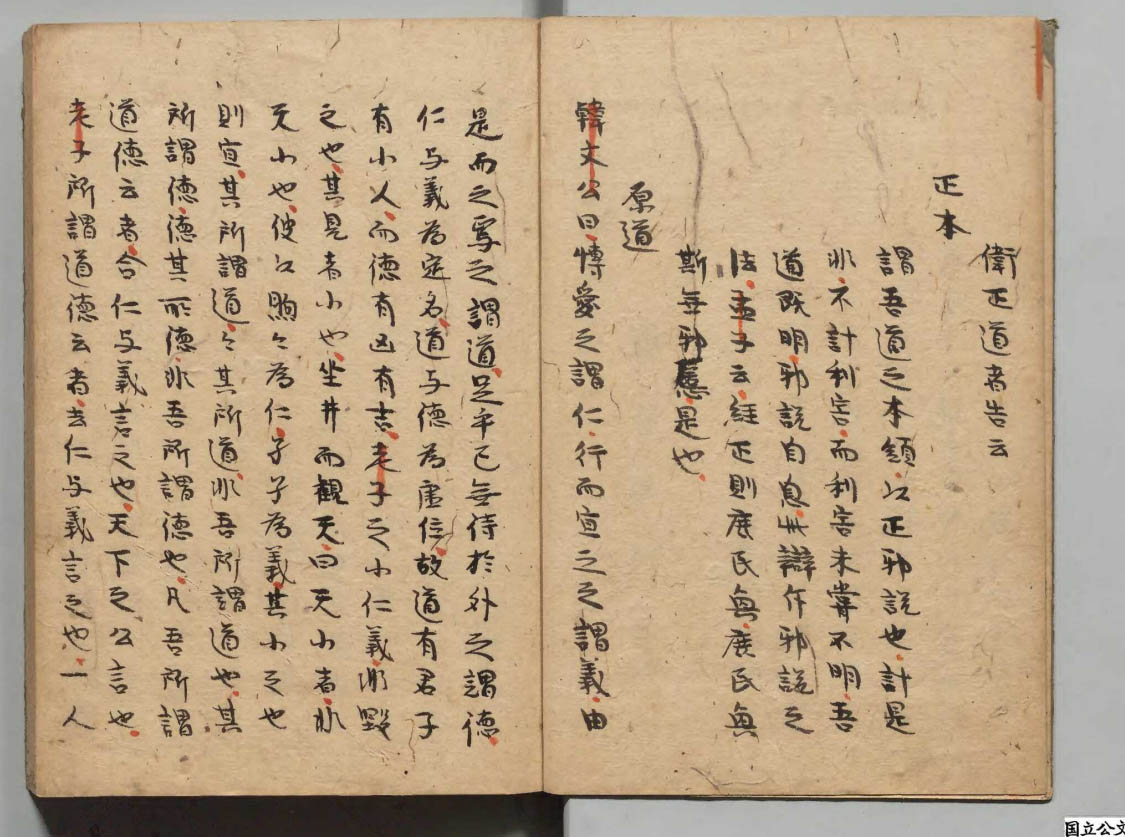 衛正道者告云
正本
謂吾道之本領以正邪説也計是
非不計利害而利害未嘗不明吾
道既明邪説自息此辯斥邪説之
法孟子云経正則庶民興庶民興
斯無邪慝是也
原道
韓文公曰博愛之謂仁行而宜之之謂義由
是而之焉之謂道足乎己無待於外之謂徳
仁与義為定名道与徳為虚位故道有君子
有小人而徳有凶有吉老子之小仁義非毀
之也其見者小也坐井而観天曰天小者非
天小也彼以煦々為仁孑孑為義其小之也
則宜其所謂道々其所道非吾所謂道也其
所謂徳徳其所徳非吾所謂徳也凡吾所謂
道徳云者合仁与義言之也天下之公言也
老子所謂道徳云者去仁与義言之也一人
国立公文